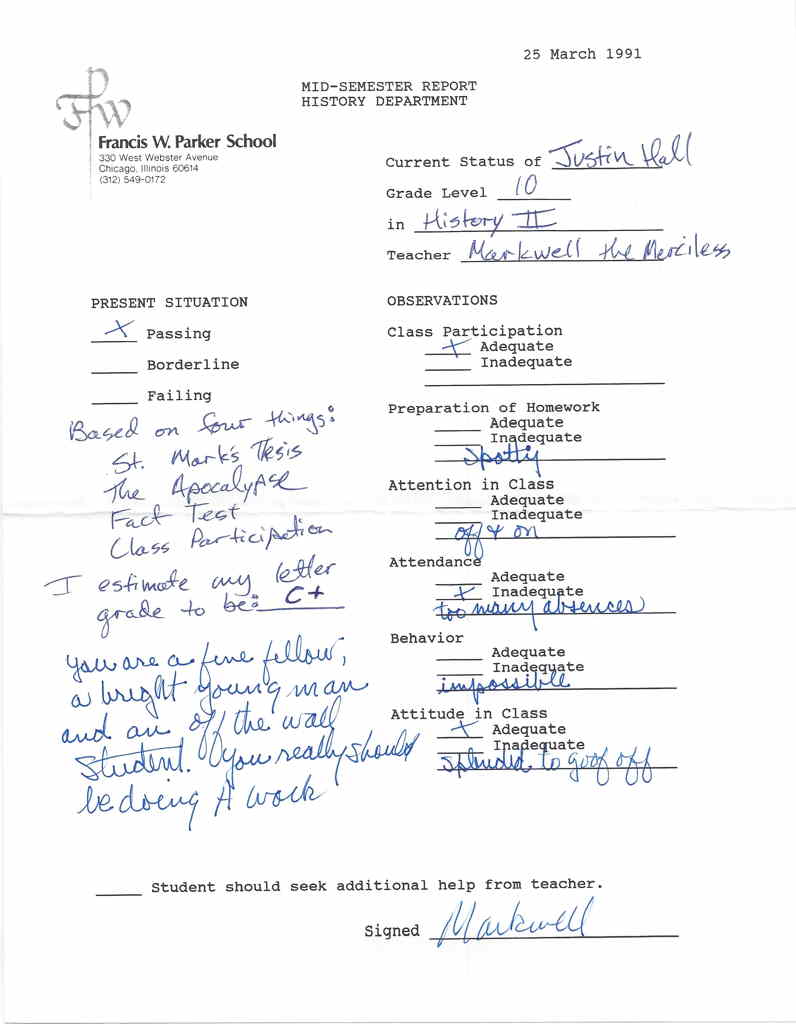 25 March 1991
MID-SEMESTER REPORT
HISTORY DEPARTMENT
FPW
Francis W. Parker School
330 West Webster Avenue
Chicago, Illinois 60614
(312) 549-0172
Current Status of Justin Hall
Grade Level 10
in History II
Teacher Markwell the Merciless
PRESENT SITUATION
X Passing
Borderline
Failing
Based on four things:
St. Mark's Tesis
The Apocalypse
Fact Test
Class Participation
I estimate my letter
grade to be: C+
You are a fine fellow,
a bright young man
and an off the wall
student. You really should
be doing A work
OBSERVATIONS
Class Participation
X Adequate
Inadequate
Preparation of Homework
Adequate
Inadequate
Spotty
Attention in Class
Adequate
Inadequate
off & on
Attendance
Adequate
X Inadequate
too many absences
Behavior
Adequate
Inadequate
impossible
Attitude in Class
X Adequate
Inadequate
splendid to goof off
Student should seek additional help from teacher.
Signed Markwell